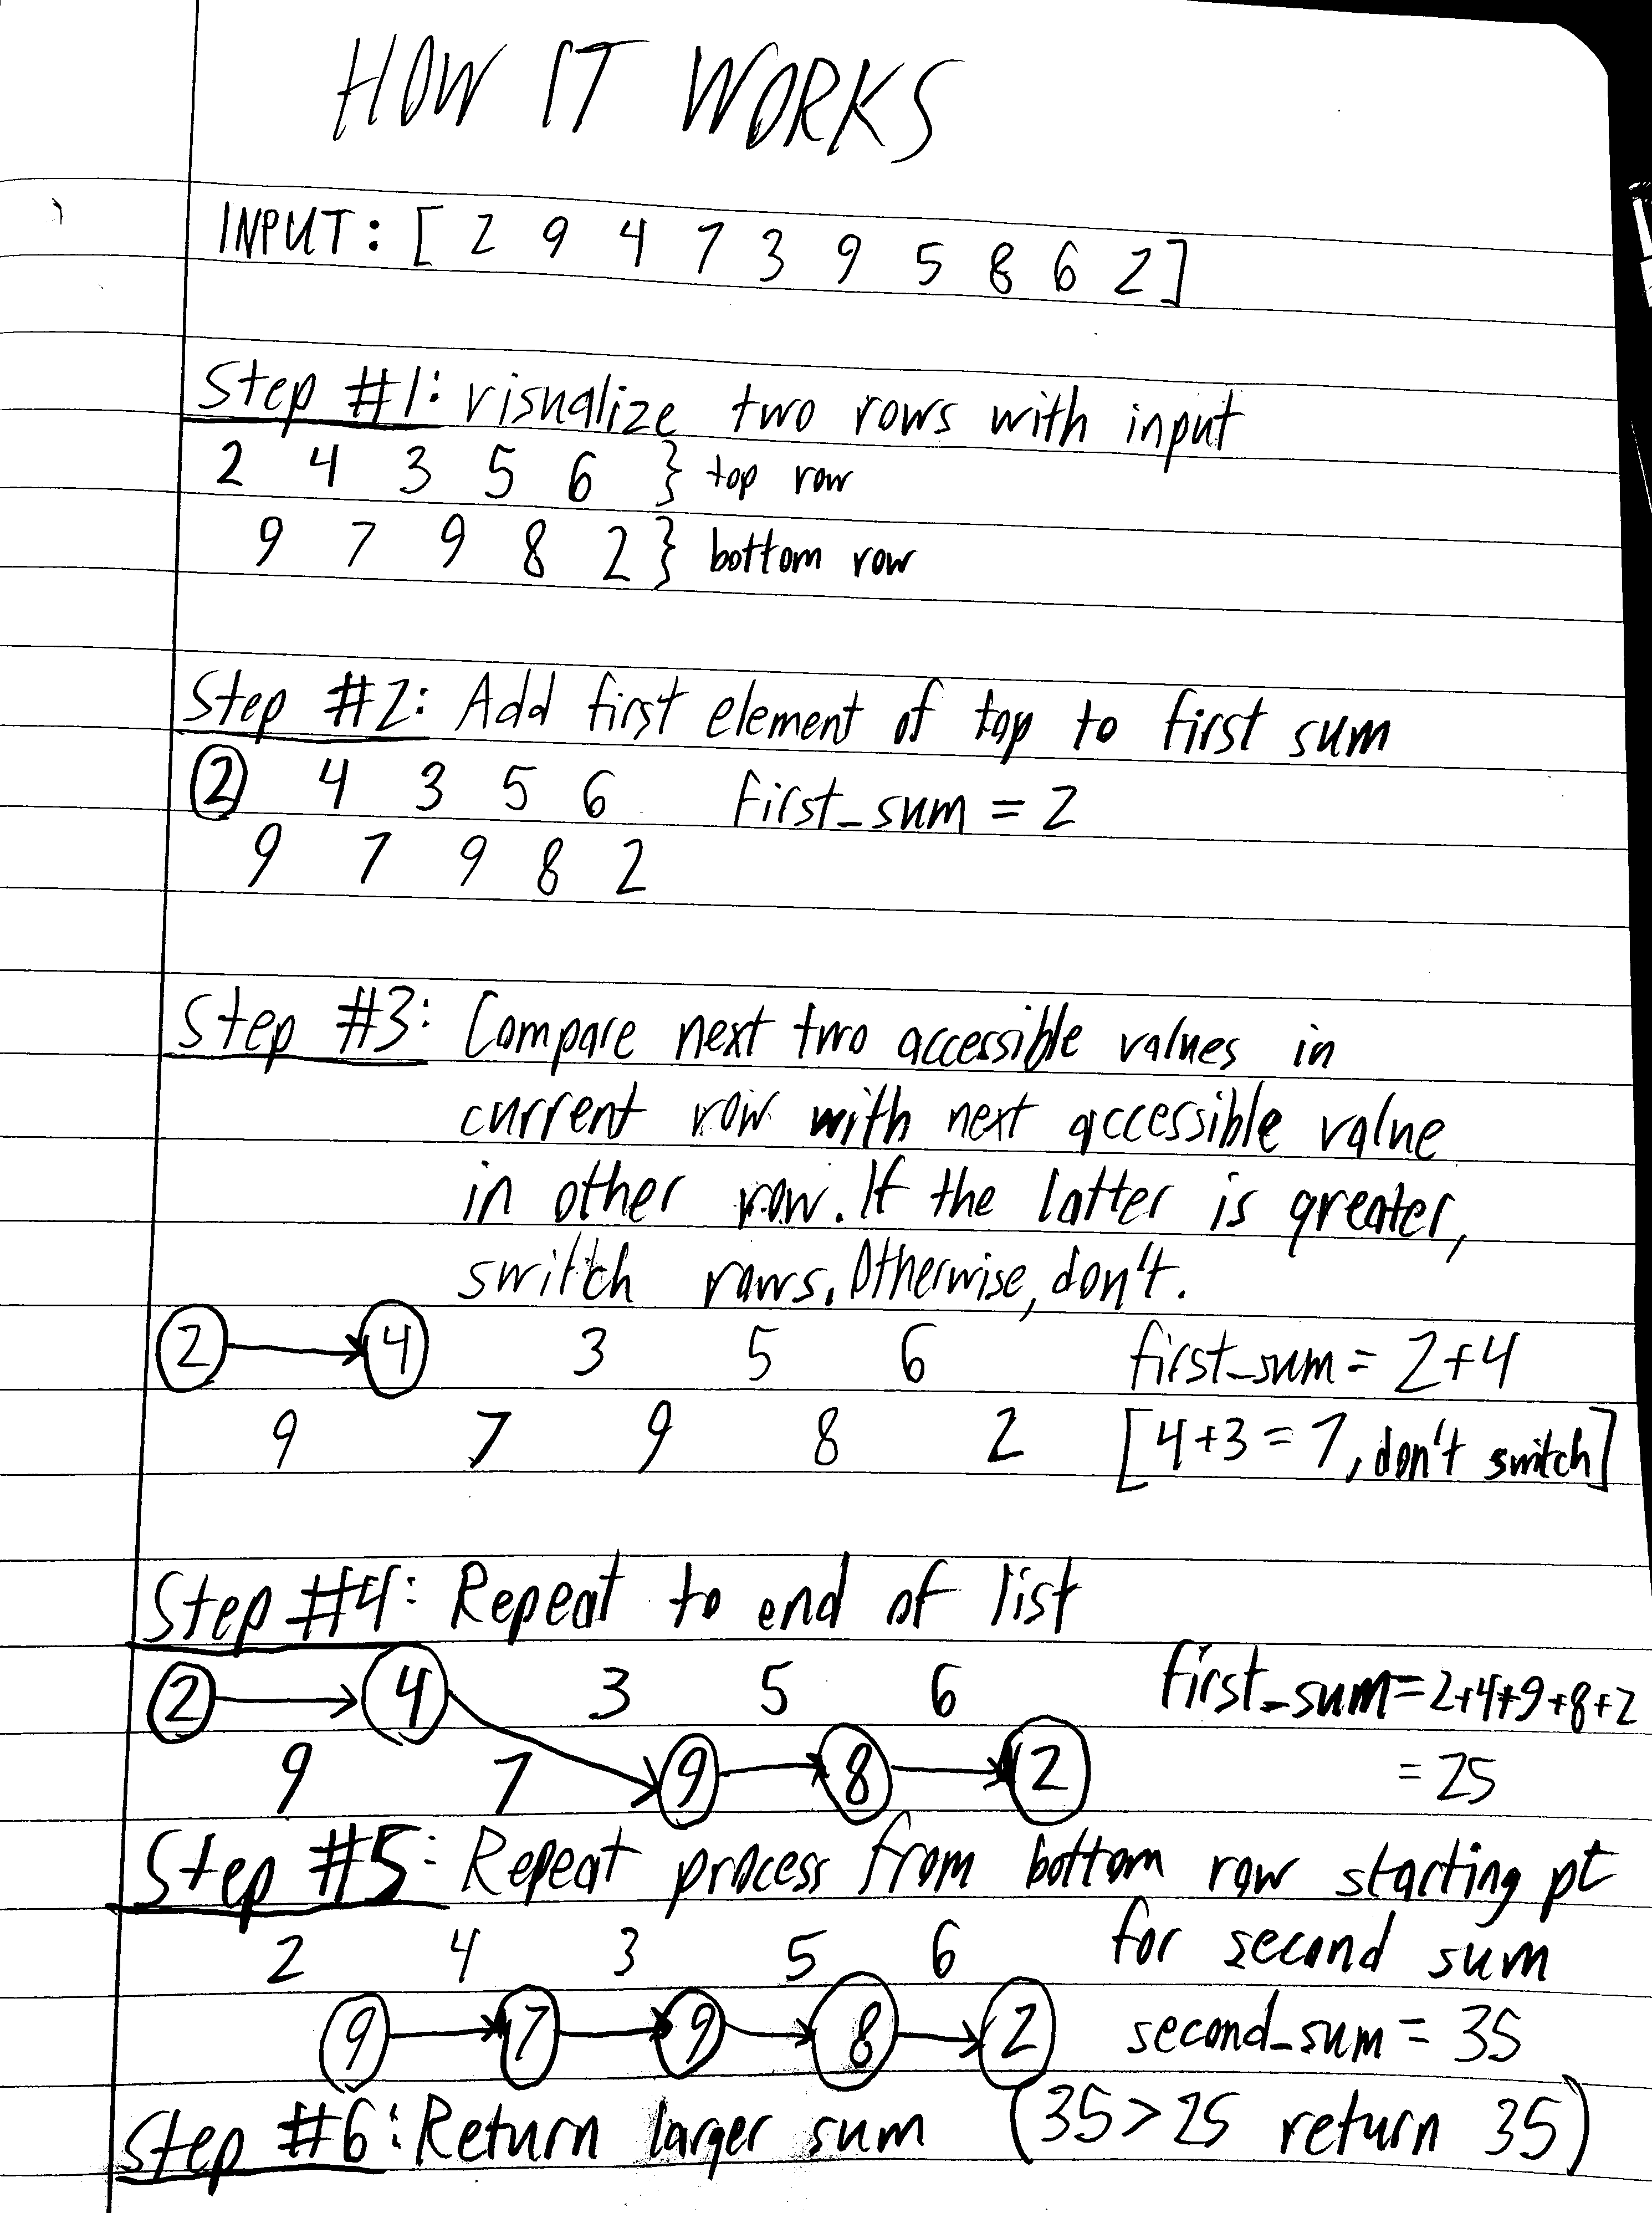 HOW IT WORKS
INPUT: [ 2 9 4 7 3 9 5 8 6 2 ]
Step #1: visualize two rows with input
2 4 3 5 6 } top row
9 7 9 8 2 } bottom row
Step #2: Add first element of top to first sum
2 4 3 5 6 first_sum = 2
9 7 9 8 2
Step #3: Compare next two accessible values in
current row with next accessible value
in other row. If the latter is greater,
switch rows. Otherwise, don't.
2 4 3 5 6 first_sum = 2+4
9 7 9 8 2 [4+3=7, don't switch]
Step #4: Repeat to end of list
2 4 3 5 6 first_sum=2+4+9+8+2
9 7 9 8 2 = 25
Step #5: Repeat process from bottom row starting pt
2 4 3 5 6 for second sum
9 7 9 8 2 second_sum = 35
Step #6: Return larger sum (35>25 return 35)